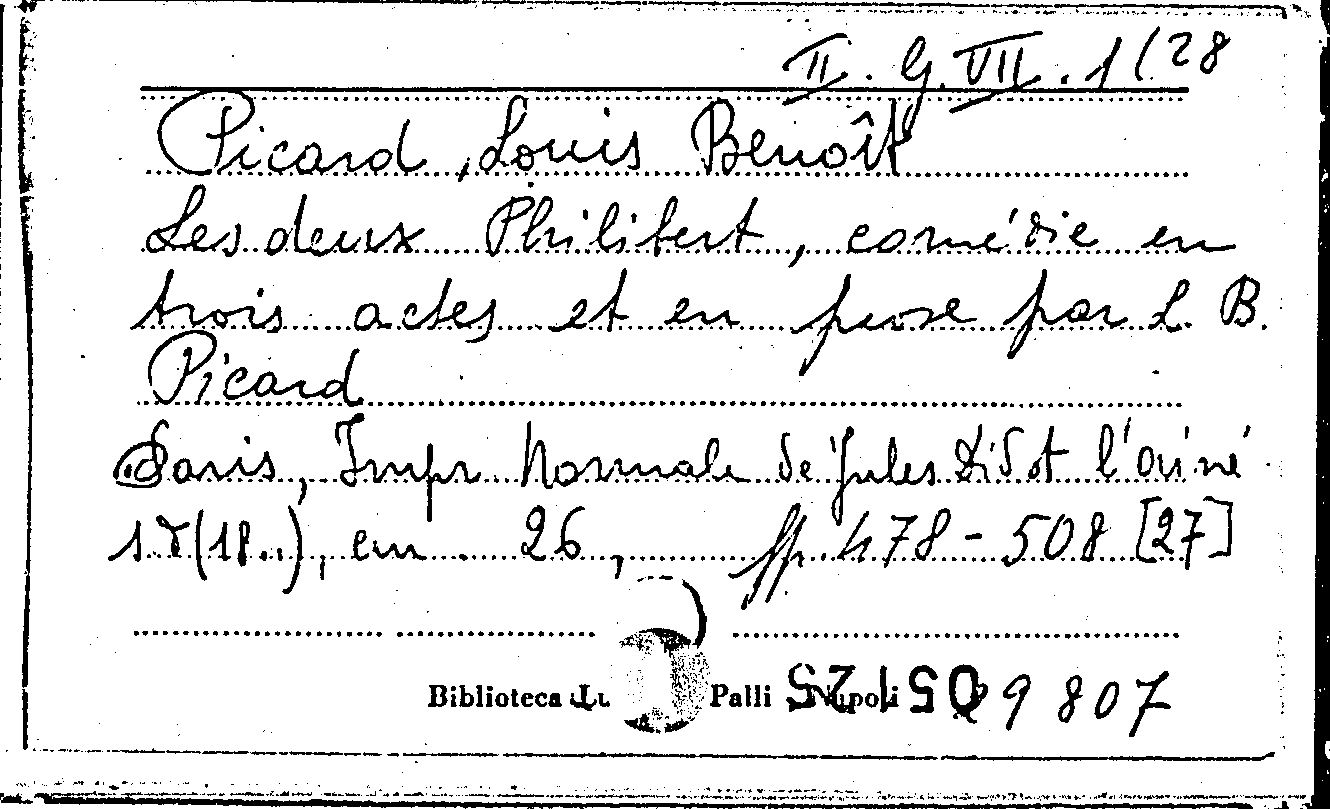 II. G. VII. 1(28
Picard, Louis Benoît
Les deux Philibert, comédie en
trois actes et en prose par L. B.
Picard
Paris, Impr Normale de Jules Didot l'aîné
18(18..), cm. 26, pp. 478-508 [27]
Biblioteca Lu Palli Napoli 29807